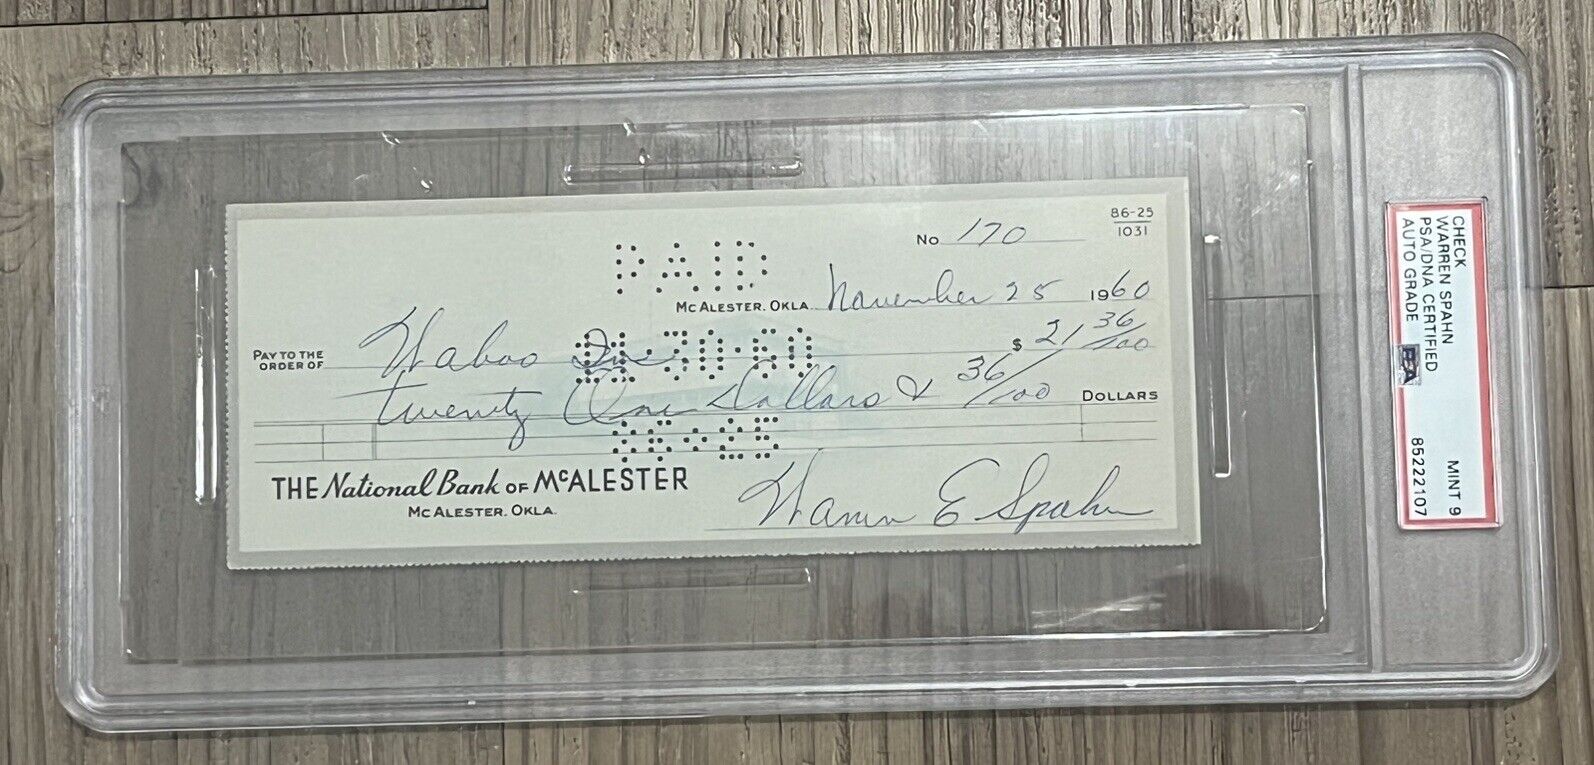 86-25
1031
No 170
PAID
McALESTER, OKLA. November 25 1960
PAY TO THE
ORDER OF Wahoo $ 21 36/100
11·30·60
twenty One Dollars & 36/100 DOLLARS
86-25
THE National Bank OF McALESTER
McALESTER, OKLA.
Warren E Spahn
CHECK
WARREN SPAHN
PSA/DNA CERTIFIED
AUTO GRADE MINT 9
PSA 85222107